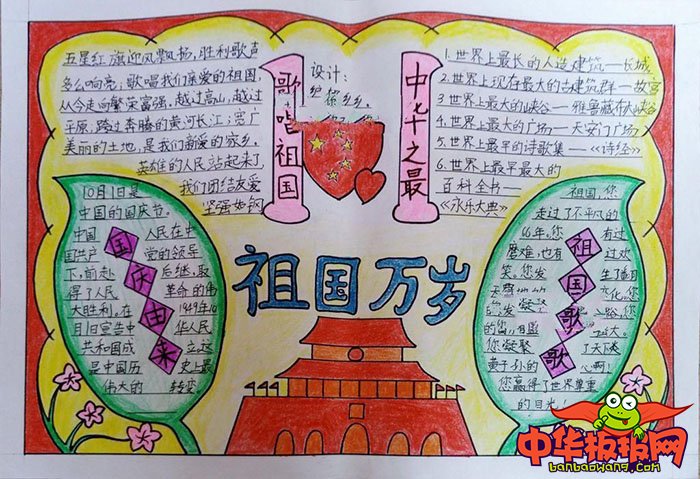 五星红旗迎风飘扬，胜利歌声
多么响亮；歌唱我们亲爱的祖国，
从今走向繁荣富强。越过高山，越过
平原，跨过奔腾的黄河长江；宽广
美丽的土地，是我们亲爱的家乡，
英雄的人民站起来了，
我们团结友爱
坚强如钢
歌唱祖国
设计：
中华之最
1.世界上最长的人造建筑——长城
2.世界上现存最大的古建筑群——故宫
3.世界上最大的峡谷——雅鲁藏布大峡谷
4.世界上最大的广场——天安门广场
5.世界上最早的诗歌集——《诗经》
6.世界上最早最大的
百科全书——
《永乐大典》
祖国万岁
国庆由来
10月1日是
中国的国庆节。
中国 人民在中
国共产 党的领导
下，前赴 后继，取
得了人民 革命的伟
大胜利。在 1949年10
月1日宣告中 华人民
共和国成 立，这
是中国历 史上最
伟大的 转变
祖国歌
歌
祖国，您
走过了不平凡的
66年。您 有过
磨难，也有 过欢
笑。您发 生了
您凝聚 了天下
黄子孙的 心啊！
您赢得了世界尊重
的目光！
中华板报网
banbaowang.com